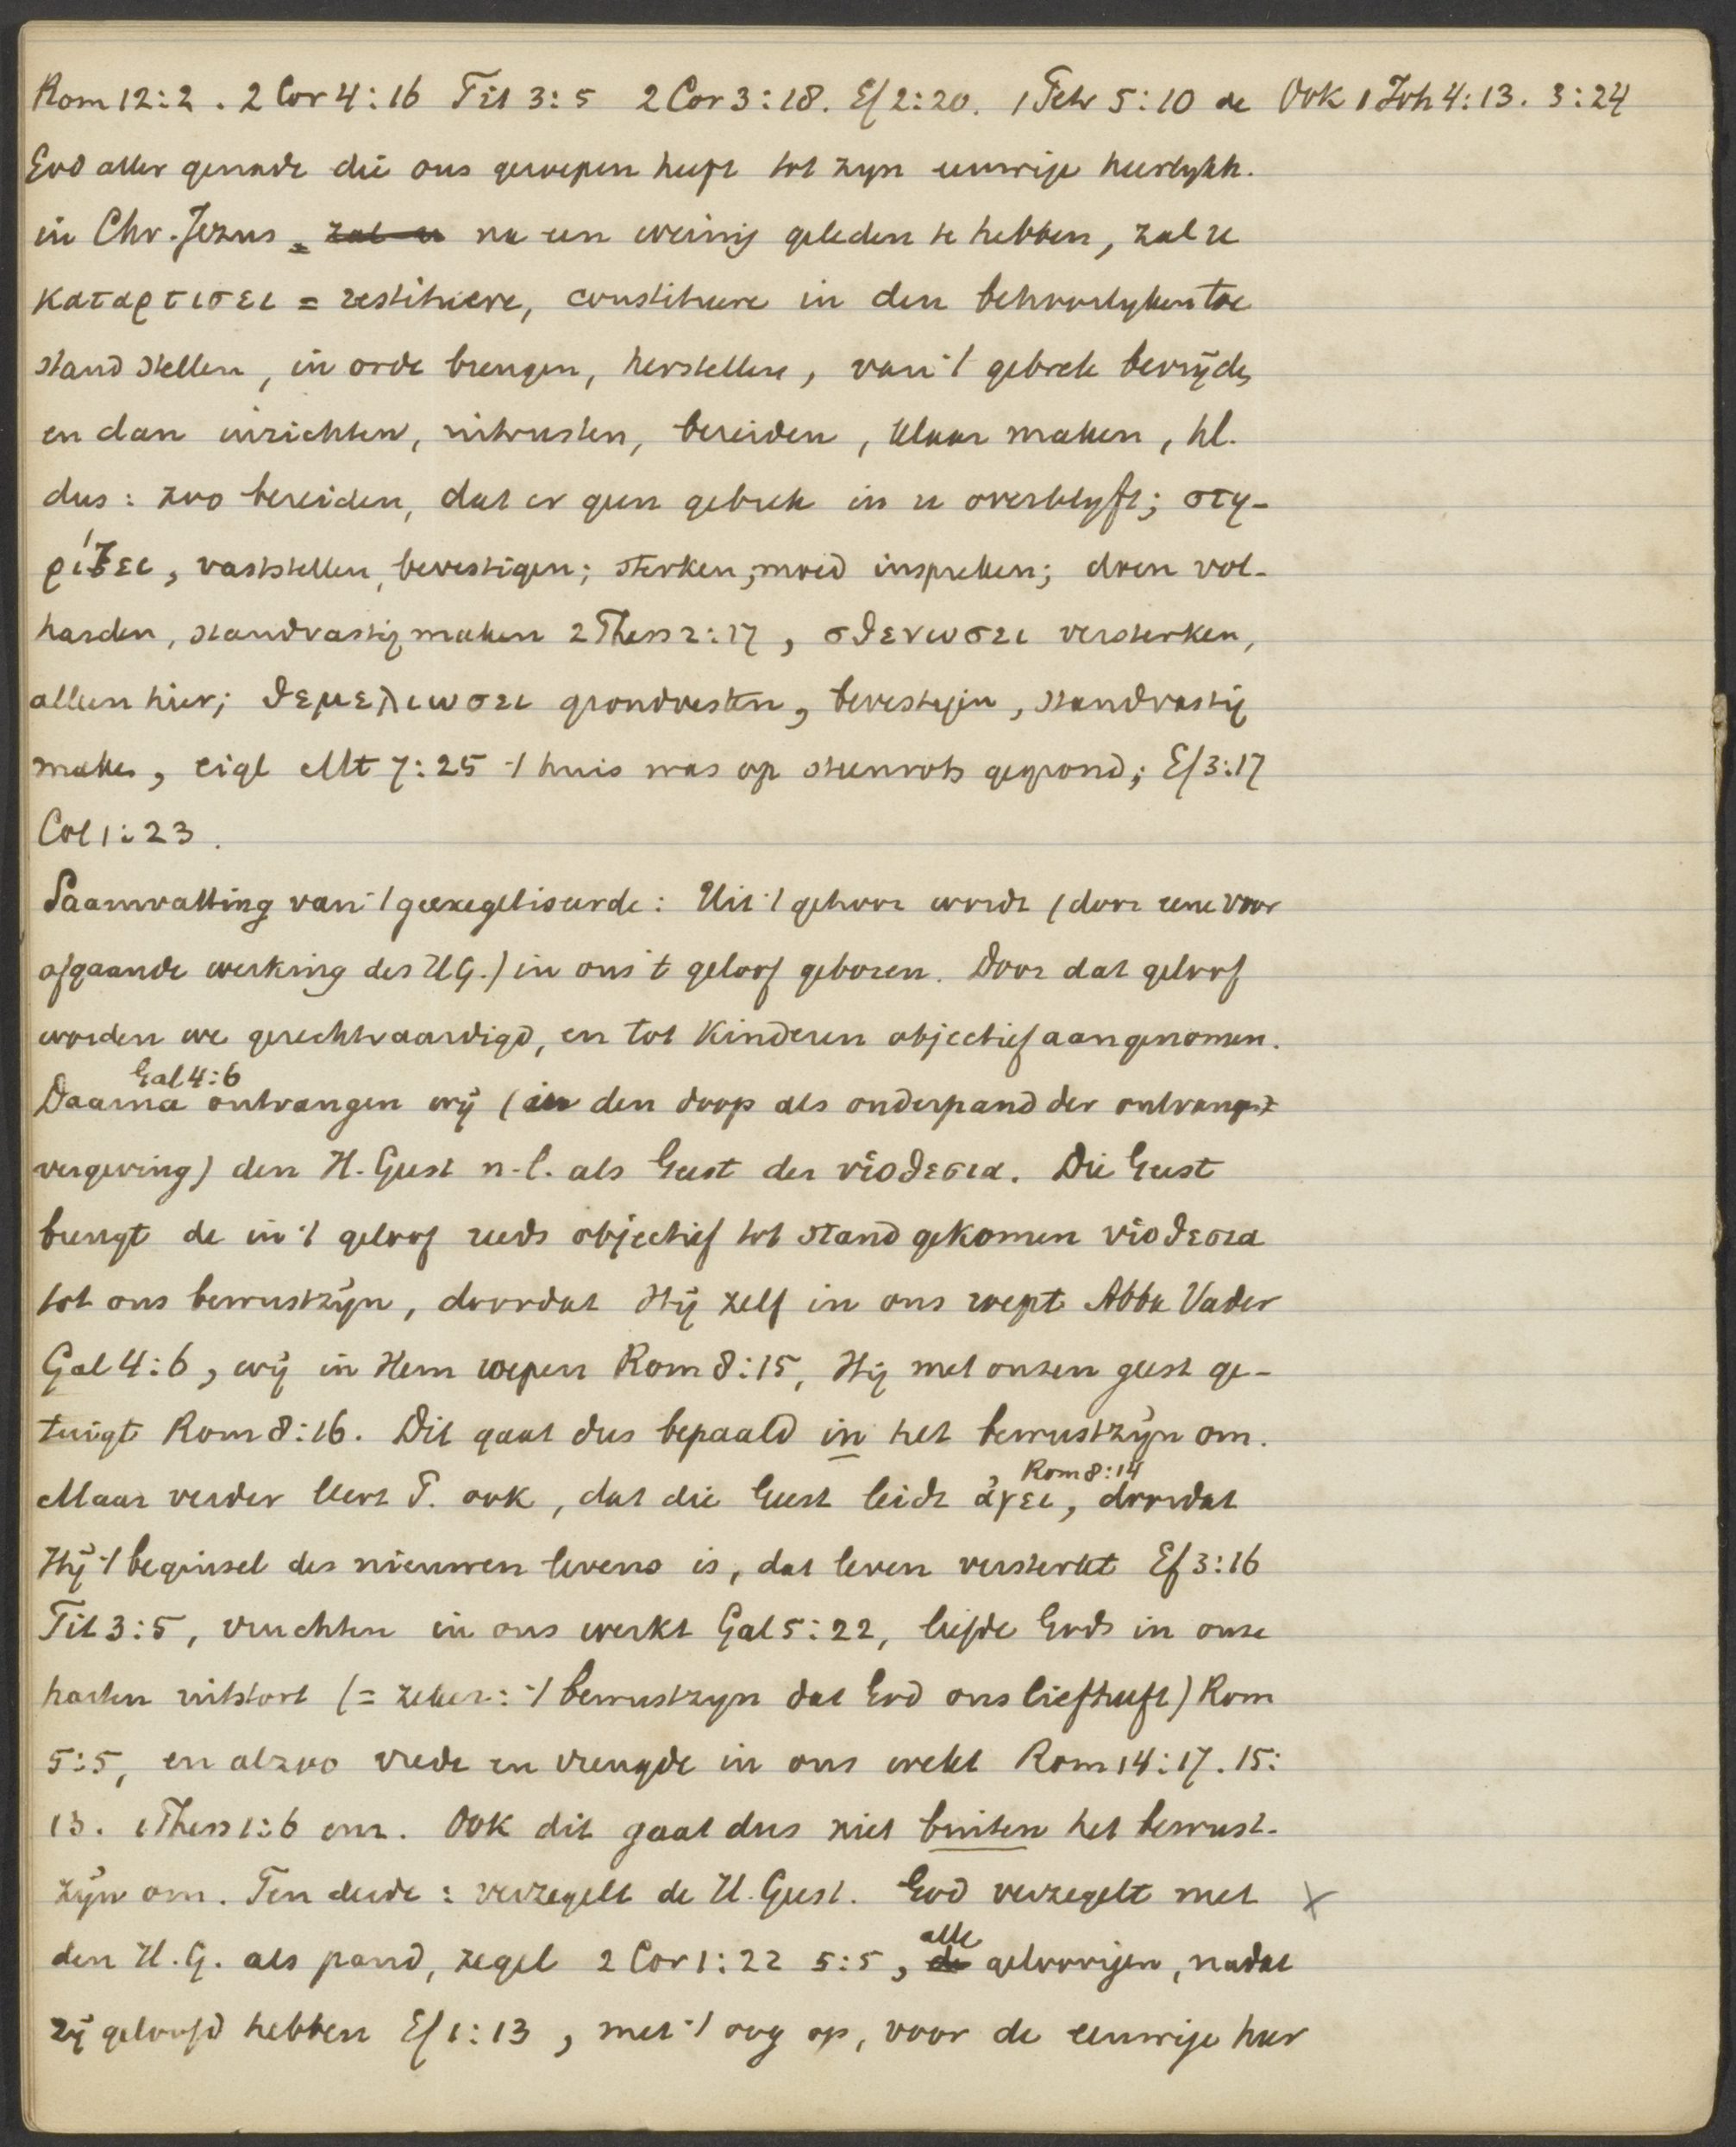 Rom 12:2. 2 Cor 4:16 Tit 3:5 2 Cor 3:18. Ef 2:20. 1 Petr 5:10 de Ook 1 Joh 4:13. 3:24
God aller genade die ons geroepen heeft tot zyn eeuwige heerlykh.
in Chr. Jezus, zal u na een weinig geleden te hebben, zal u
καταρτισει = restituere, constituere in den behoorlyken toe
stand stellen, in orde brengen, herstellen, van 't gebrek bevrijden
en dan inrichten, uitrusten, bereiden, klaar maken, hl.
dus: zoo bereiden, dat er geen gebrek in u overblyft; στη-
ρίξει, vaststellen, bevestigen; sterken; moed inspreken; doen vol-
harden, standvastig maken 2 Thess 2:17, σθενωσει versterken,
alleen hier; θεμελιωσει grondvesten, bevestigen, standvastig
maken, eigl Mt 7:25 't huis was op steenrots gegrond; Ef 3:17
Col 1:23.
Saamvatting van 't geexegetiseerde: Uit 't gehoor wordt (door eene voor
afgaande werking des H.G.) in ons 't geloof geboren. Door dat geloof
worden we gerechtvaardigd, en tot Kinderen objectief aangenomen.
Gal 4:6
Daarna ontvangen wij (in den doop als onderpand der ontvangst
vergeving) den H. Geest n.l. als Geest der υἱοθεσια. Die Geest
brengt de in 't geloof reeds objectief tot stand gekomen υἱοθεσια
tot ons bewustzijn, doordat Hij zelf in ons roept Abba Vader
Gal 4:6, wij in Hem roepen Rom 8:15, Hij met onzen geest ge-
tuigt Rom 8:16. Dit gaat dus bepaald in het bewustzijn om.
Rom 8:14
Maar verder leert P. ook, dat die Geest leidt ἀγει, doordat
Hij 't beginsel des nieuwen levens is, dat leven versterkt Ef 3:16
Tit 3:5, vruchten in ons werkt Gal 5:22, liefde Gods in onze
harten uitstort (= zeker: 't bewustzyn dat God ons liefheeft) Rom
5:5, en alzoo vrede en vreugde in ons wekt Rom 14:17. 15:
13. 1 Thess 1:6 enz. Ook dit gaat dus niet buiten het bewust-
zijn om. Ten derde: verzegelt de H. Geest. God verzegelt met x
alle
den H.G. als pand, zegel 2 Cor 1:22 5:5, de geloovigen, nadat
zij geloofd hebben Ef 1:13, met 't oog op, voor de eeuwige heer